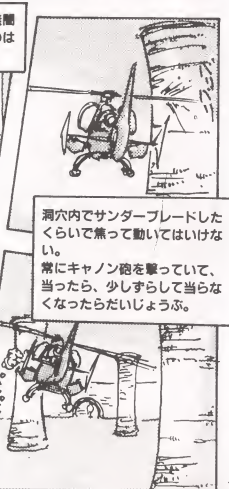 闇
のは
洞穴内でサンダーブレードした
くらいで焦って動いてはいけな
い。
常にキャノン砲を撃っていて、
当ったら、少しずらして当らな
くなったらだいじょうぶ。